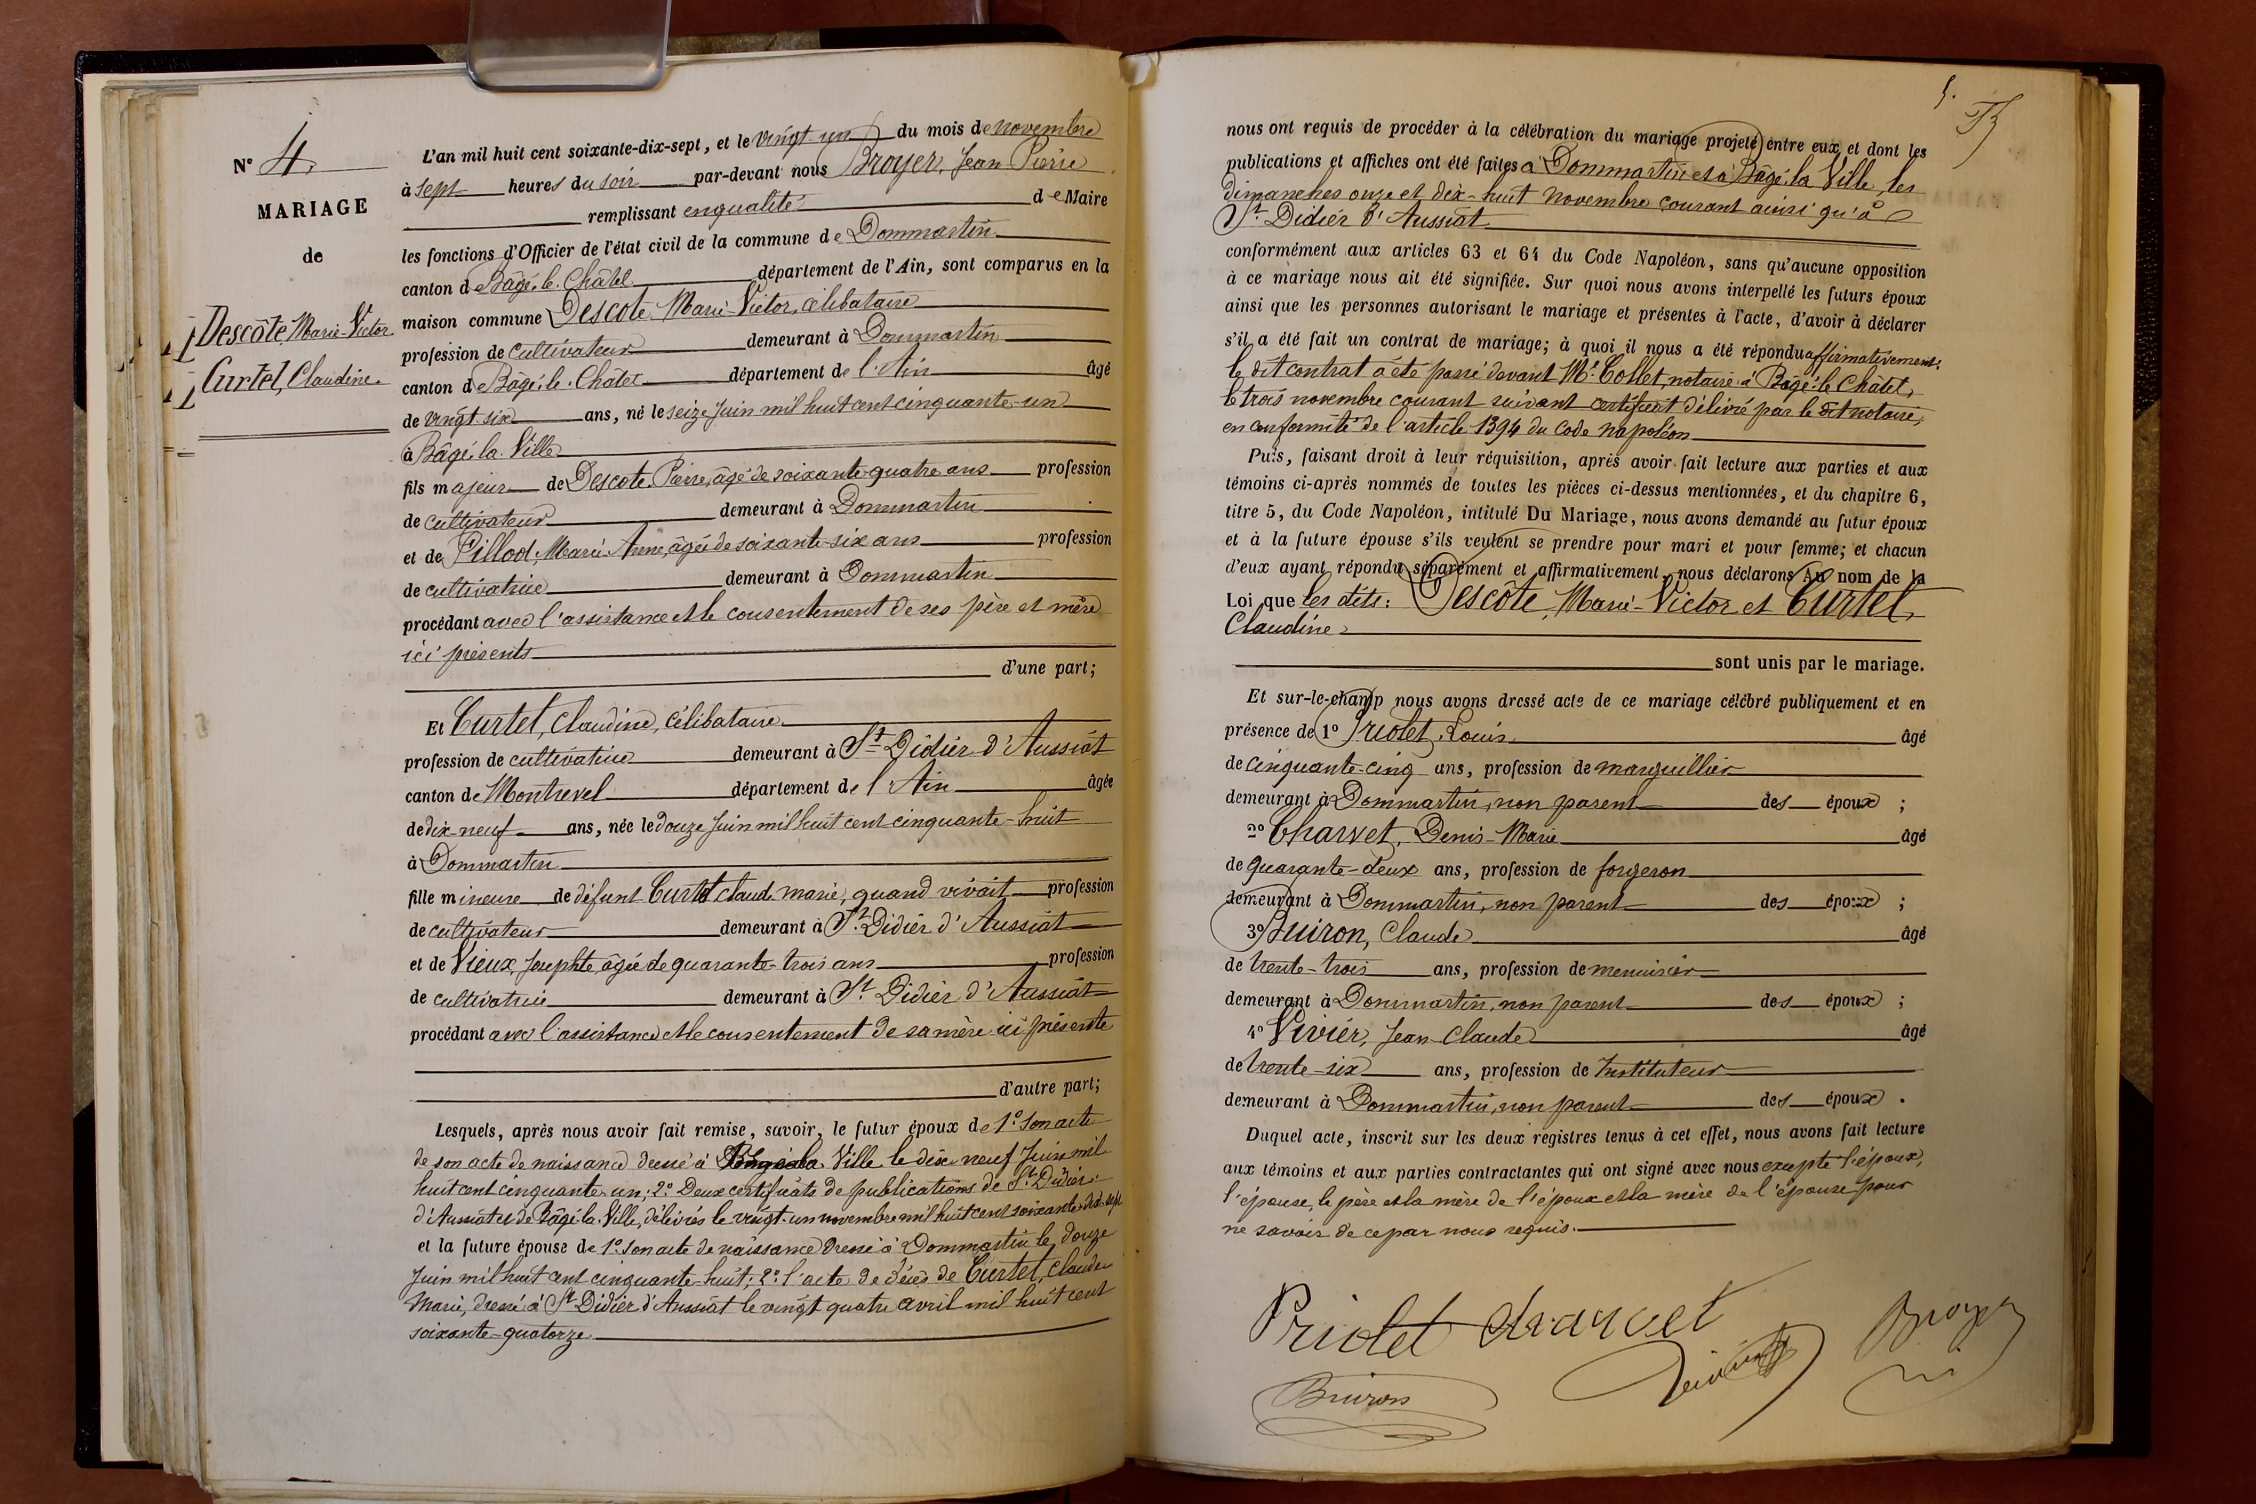 N° 4.
MARIAGE
de
Descôte, Marie-Victor
Curtet, Claudine.
L'an mil huit cent soixante-dix-sept, et le vingt un du mois de novembre
à sept heures du soir par-devant nous Broyer, Jean Pierre
remplissant en qualité de Maire
les fonctions d'Officier de l'état civil de la commune de Dommartin
canton de Bâgé-le-Châtel département de l'Ain, sont comparus en la
maison commune Descote Marie-Victor, célibataire
profession de cultivateur demeurant à Dommartin
canton de Bâgé-le-Châtel département de l'Ain âgé
de vingt-six ans, né le seize Juin mil huit cent cinquante-un
à Bâgé-la-Ville
fils majeur de Descote Pierre, âgé de soixante-quatre ans profession
de cultivateur demeurant à Dommartin
et de Pillod, Marie-Anne, âgée de soixante-six ans profession
de cultivatrice demeurant à Dommartin
procédant avec l'assistance et le consentement de ses père et mère
ici présents
d'une part;
Et Curtet, Claudine, célibataire
profession de cultivatrice demeurant à St Didier d'Aussiat
canton de Montrevel département de l'Ain âgée
de dix-neuf ans, née le douze Juin mil huit cent cinquante-huit
à Dommartin
fille mineure de défunt Curtet Claude Marie, quand vivait profession
de cultivateur demeurant à St Didier d'Aussiat
et de Vieux, Josephte, âgée de quarante-trois ans profession
de cultivatrice demeurant à St Didier d'Aussiat
procédant avec l'assistance et le consentement de sa mère ici présente
d'autre part;
Lesquels, après nous avoir fait remise, savoir, le futur époux de 1° Son acte
de son acte de naissance dressé à Bâgé-la-Ville le dix-neuf Juin mil
huit cent cinquante-un; 2° Deux certificats de publications de St Didier-
d'Aussiat et de Bâgé-la-Ville, délivrés le vingt-un novembre mil huit cent soixante-dix-sept
et la future épouse de 1° Son acte de naissance dressé à Dommartin le douze
Juin mil huit cent cinquante-huit; 2° l'acte de décès de Curtet, Claude
Marie, dressé à St Didier d'Aussiat le vingt quatre avril mil huit cent
soixante-quatorze
5.
nous ont requis de procéder à la célébration du mariage projeté entre eux, et dont les
publications et affiches ont été faites à Dommartin et à Bâgé-la-Ville, les
dimanches onze et dix-huit novembre courant ainsi qu'à
St Didier d'Aussiat
conformément aux articles 63 et 64 du Code Napoléon, sans qu'aucune opposition
à ce mariage nous ait été signifiée. Sur quoi nous avons interpellé les futurs époux
ainsi que les personnes autorisant le mariage et présentes à l'acte, d'avoir à déclarer
s'il a été fait un contrat de mariage; à quoi il nous a été répondu affirmativement:
le dit contrat a été passé devant Me Collet, notaire à Bâgé-le-Châtel,
le trois novembre courant suivant certificat délivré par le dit notaire,
en conformité de l'article 1394 du code napoléon
Puis, faisant droit à leur réquisition, après avoir fait lecture aux parties et aux
témoins ci-après nommés de toutes les pièces ci-dessus mentionnées, et du chapitre 6,
titre 5, du Code Napoléon, intitulé Du Mariage, nous avons demandé au futur époux
et à la future épouse s'ils veulent se prendre pour mari et pour femme; et chacun
d'eux ayant répondu séparément et affirmativement, nous déclarons Au nom de la
Loi que les dits: Descôte, Marie-Victor et Curtet,
Claudine
sont unis par le mariage.
Et sur-le-champ nous avons dressé acte de ce mariage célébré publiquement et en
présence de 1° Priolet, Louis âgé
de cinquante-cinq ans, profession de marguillier
demeurant à Dommartin, non parent des époux ;
2° Charvet, Denis-Marie âgé
de quarante-deux ans, profession de forgeron
demeurant à Dommartin, non parent des époux ;
3° Buiron, Claude âgé
de trente-trois ans, profession de menuisier
demeurant à Dommartin, non parent des époux ;
4° Vivier, Jean-Claude âgé
de trente-six ans, profession de Instituteur
demeurant à Dommartin, non parent des époux .
Duquel acte, inscrit sur les deux registres tenus à cet effet, nous avons fait lecture
aux témoins et aux parties contractantes qui ont signé avec nous excepté l'époux,
l'épouse, le père et la mère de l'époux et la mère de l'épouse pour
ne savoir de ce par nous requis.
Priolet Charvet
Broyer
Vivier
Buiron